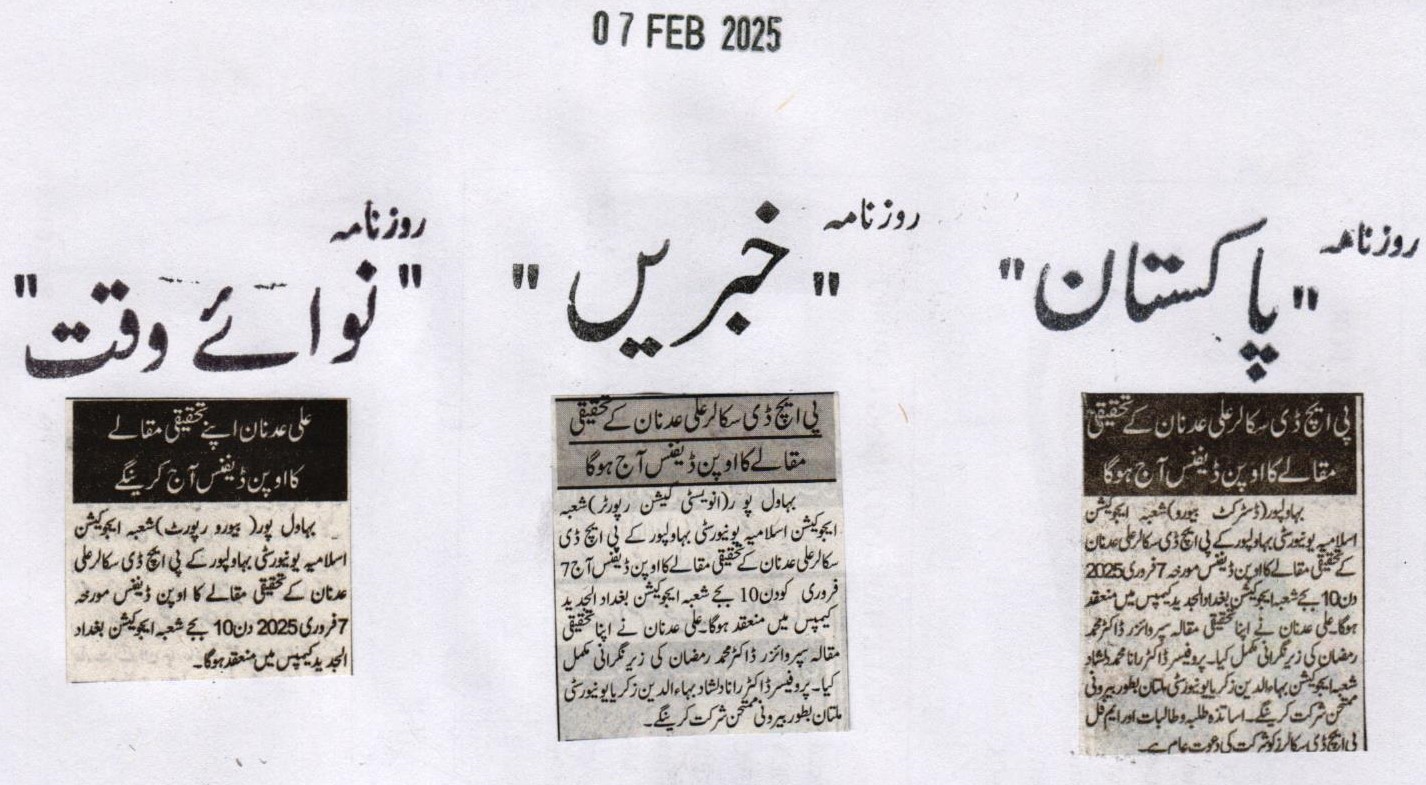 07 FEB 2025
روزنامہ
"پاکستان"
پی ایچ ڈی سکالر علی عدنان کے تحقیقی
مقالے کا اوپن ڈیفنس آج ہوگا
بہاولپور(ڈسٹرکٹ بیورو)شعبہ ایجوکیشن
اسلامیہ یونیورسٹی بہاولپور کے پی ایچ ڈی سکالر علی عدنان
کے تحقیقی مقالے کا اوپن ڈیفنس مورخہ 7فروری2025
دن10بجے شعبہ ایجوکیشن بغداد الجدید کیمپس میں منعقد
ہوگا۔علی عدنان نے اپنا تحقیقی مقالہ سپروائزر ڈاکٹر محمد
رمضان کی زیر نگرانی مکمل کیا۔پروفیسر ڈاکٹر رانا محمد دلشاد
شعبہ ایجوکیشن بہاءالدین زکریا یونیورسٹی ملتان بطور بیرونی
ممتحن شرکت کرینگے۔اساتذہ طلبہ و طالبات اور ایم فل
پی ایچ ڈی سکالرز کو شرکت کی دعوت عام ہے۔
روزنامہ
"خبریں"
پی ایچ ڈی سکالر علی عدنان کے تحقیقی
مقالے کا اوپن ڈیفنس آج ہوگا
بہاول پور(انویسٹی گیشن رپورٹر)شعبہ
ایجوکیشن اسلامیہ یونیورسٹی بہاولپور کے پی ایچ ڈی
سکالر علی عدنان کے تحقیقی مقالے کا اوپن ڈیفنس آج 7
فروری کو دن10 بجے شعبہ ایجوکیشن بغداد الجدید
کیمپس میں منعقد ہوگا۔علی عدنان نے اپنا تحقیقی
مقالہ سپروائزر ڈاکٹر محمد رمضان کی زیر نگرانی مکمل
کیا۔پروفیسر ڈاکٹر رانا دلشاد بہاءالدین زکریا یونیورسٹی
ملتان بطور بیرونی ممتحن شرکت کرینگے۔
روزنامہ
"نوائے وقت"
علی عدنان اپنے تحقیقی مقالے
کا اوپن ڈیفنس آج کرینگے
بہاول پور( بیورو رپورٹ)شعبہ ایجوکیشن
اسلامیہ یونیورسٹی بہاولپور کے پی ایچ ڈی سکالر علی
عدنان کے تحقیقی مقالے کا اوپن ڈیفنس مورخہ
7فروری2025 دن10 بجے شعبہ ایجوکیشن بغداد
الجدید کیمپس میں منعقد ہوگا۔